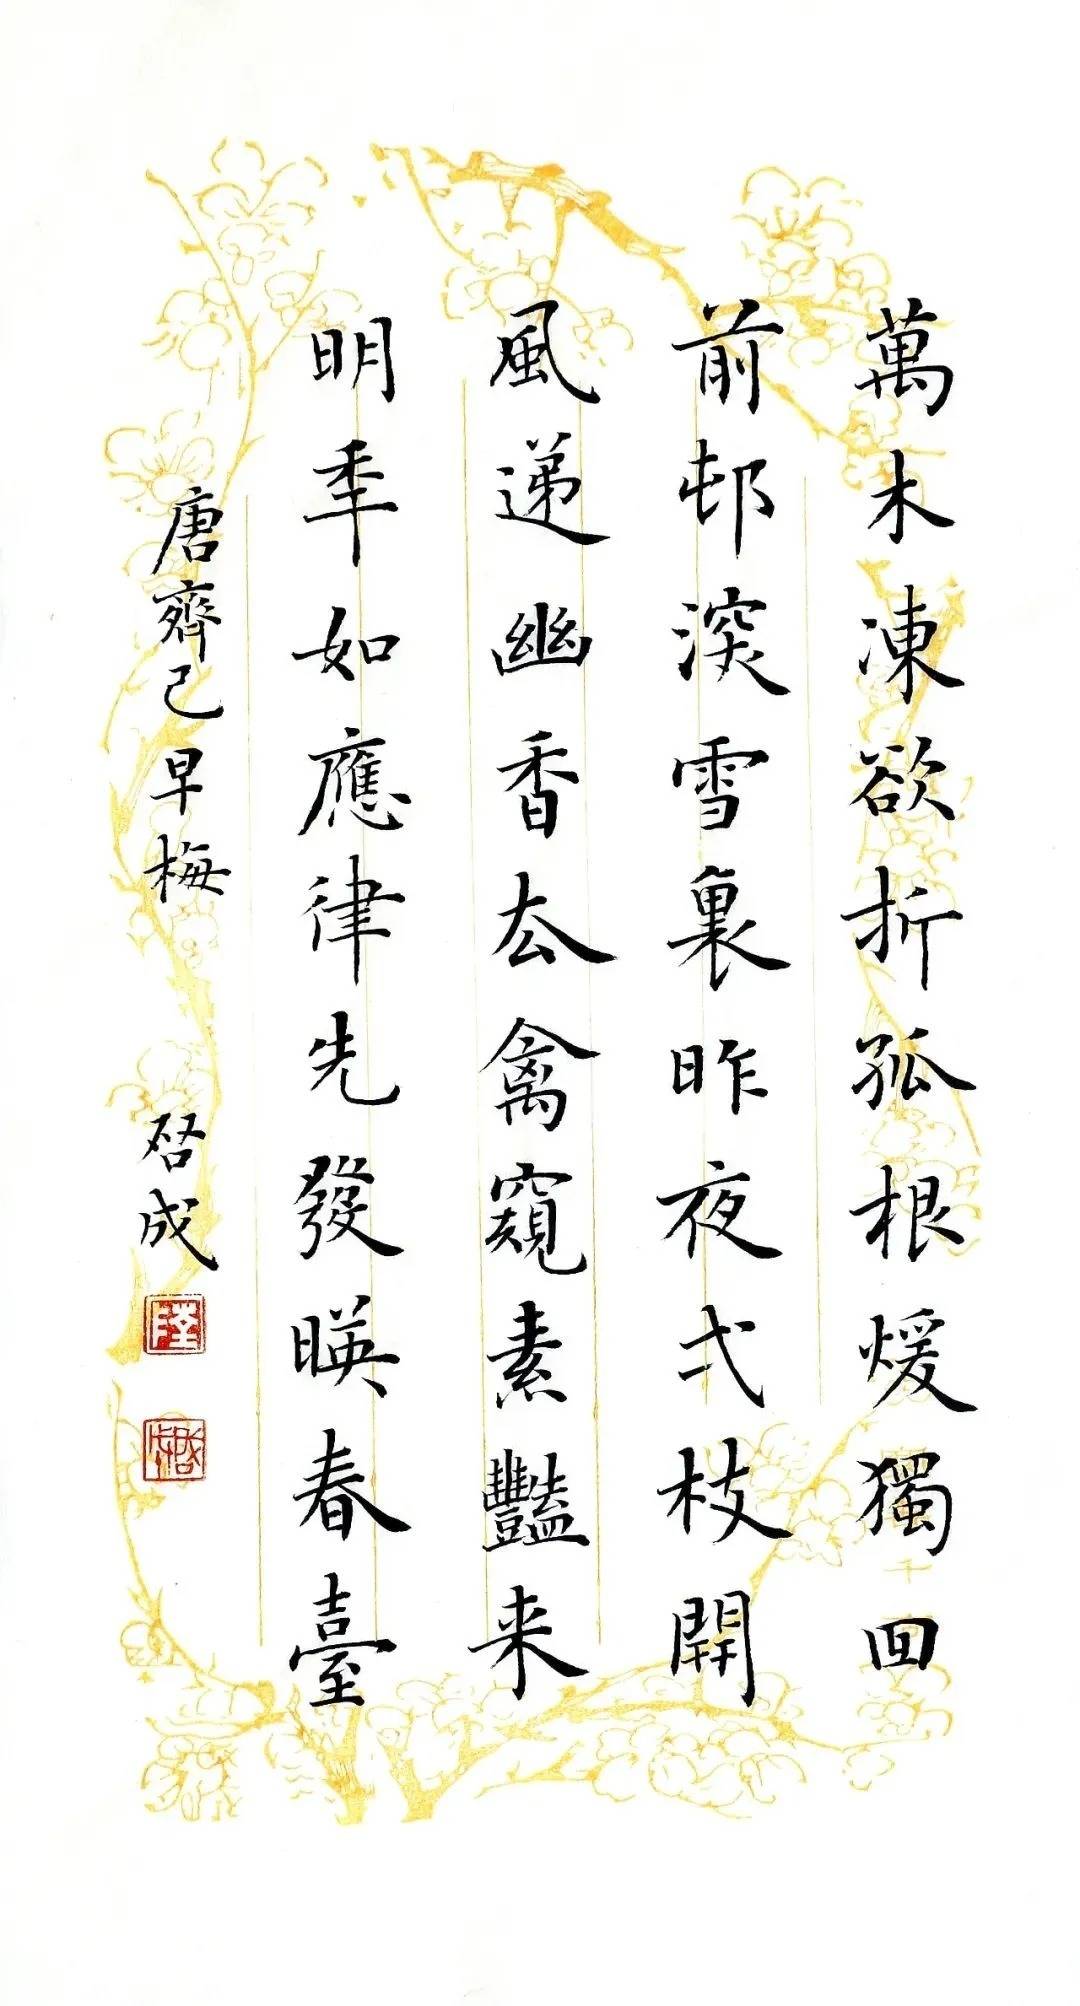 萬木凍欲折孤根煖獨回
前邨深雪裏昨夜弌枝開
風遞幽香去禽窺素豔来
明年如應律先發暎春臺
唐齊己早梅
啓成
陸